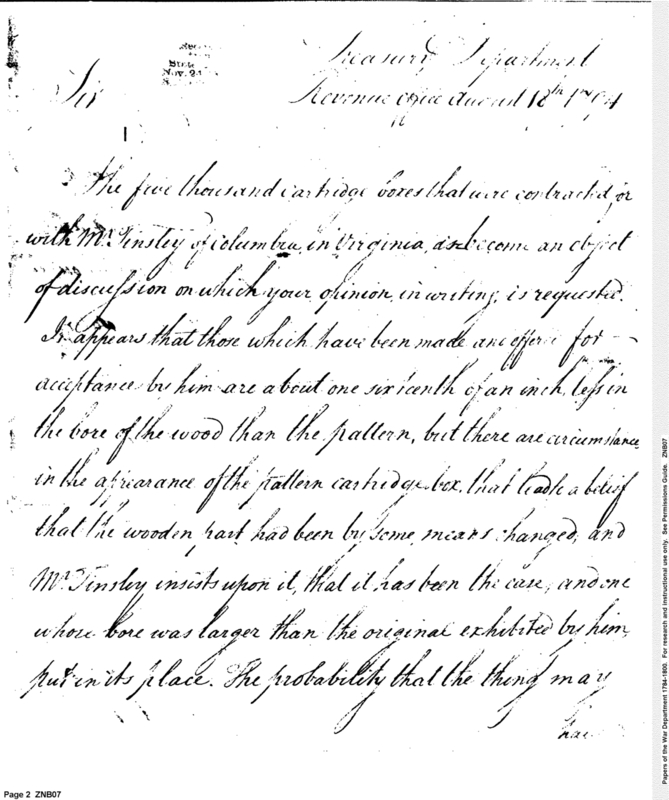 Treasury Department
Revenue office August 18th 1794
Sir
State
Nov. 24
The five thousand cartridge boxes that were contracted for
with Mr. Tinsley of Columbia, in Virginia, has become an object
of discussion on which your opinion, in writing, is requested.
It appears that those which have been made and offered for
acceptance by him are about one sixteenth of an inch, less in
the bore of the wood than the pattern, but there are circumstances
in the appearance of the pattern cartridge box, that lead to a belief
that the wooden part had been by some means changed, and
Mr. Tinsley insists upon it, that it has been the case, and one
whose bore was larger than the original exhibited by him,
put in its place. The probability that the thing may
have
Page 2 ZNB07
Papers of the War Department 1784-1800. For research and instructional use only. See Permissions Guide. ZNB07